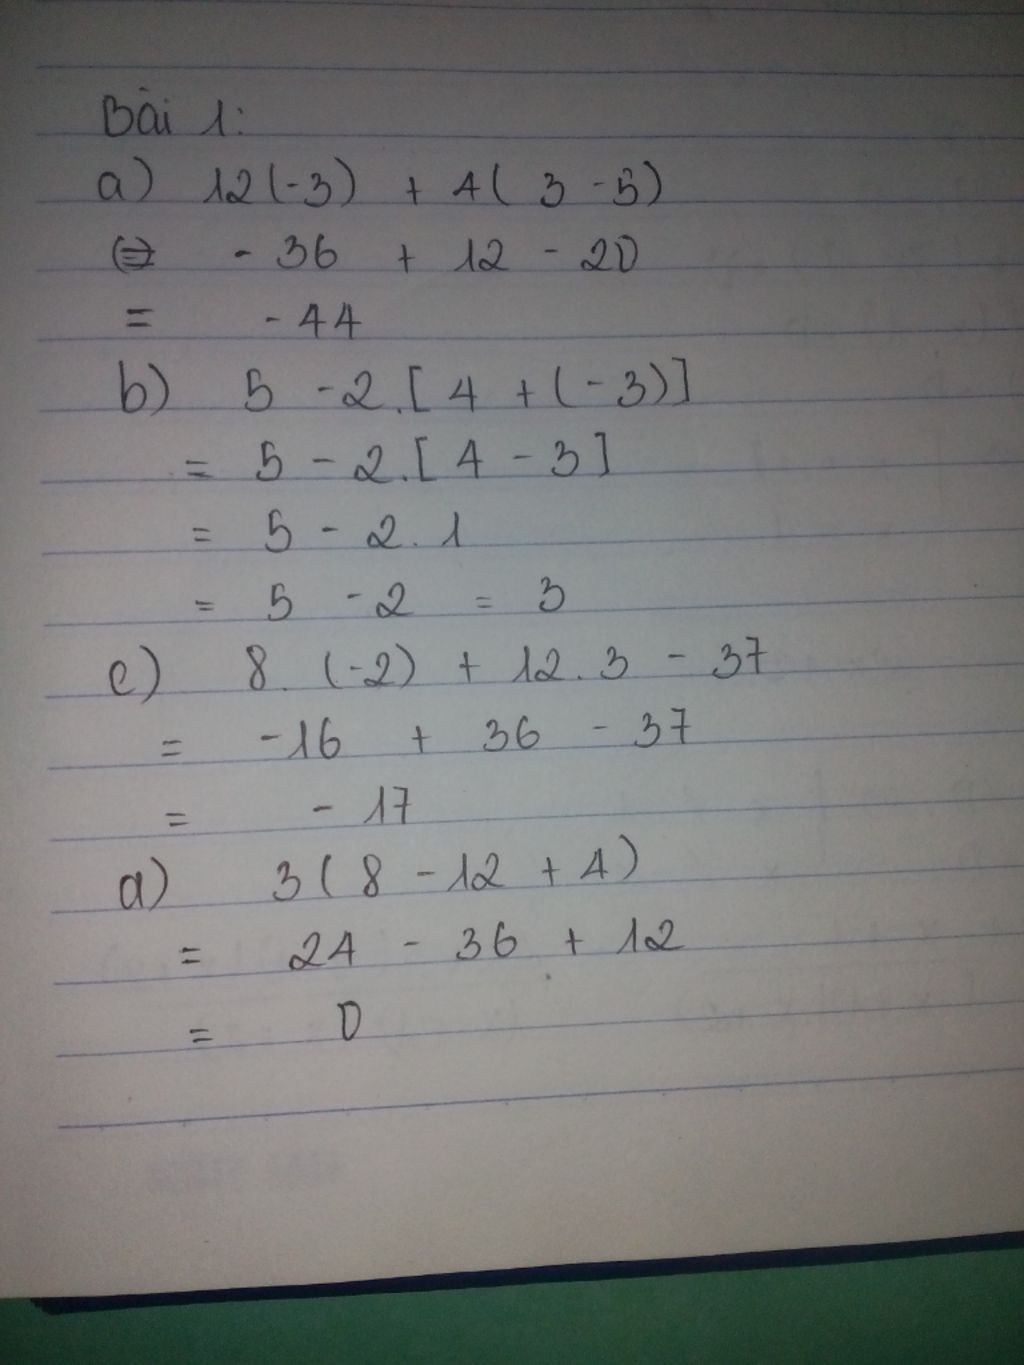 Bài 1:
a) 12(-3) + 4( 3 - 5)
= - 36 + 12 - 20
= - 44
b) 5 - 2.[ 4 + (-3)]
= 5 - 2.[ 4 - 3 ]
= 5 - 2. 1
= 5 - 2 = 3
c) 8. (-2) + 12. 3 - 37
= -16 + 36 - 37
= - 17
d) 3( 8 - 12 + 4)
= 24 - 36 + 12
= 0